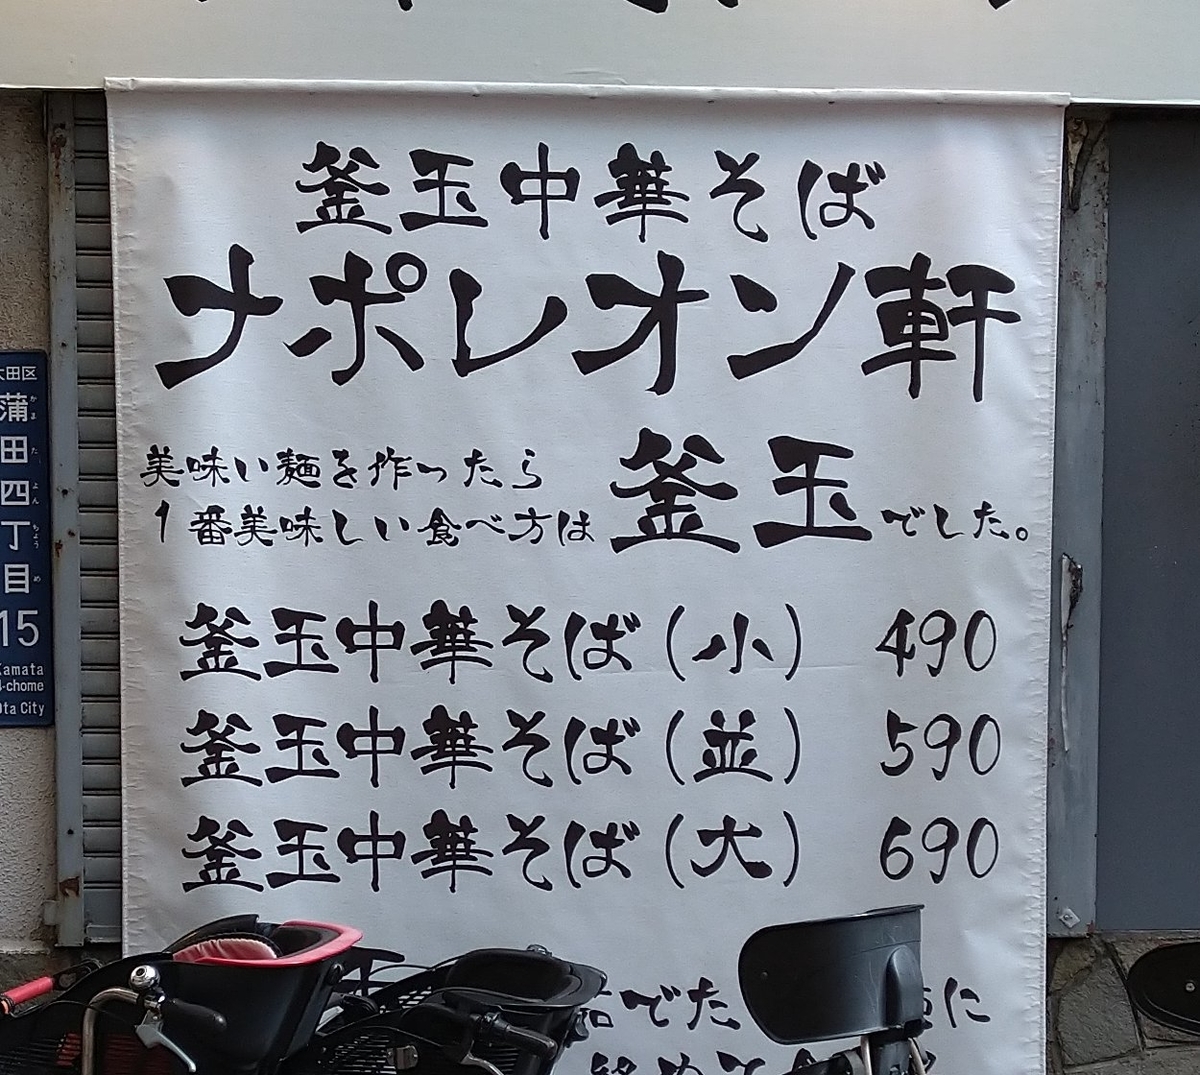 釜玉中華そば
ナポレオン軒
美味い麺を作ったら
1番美味しい食べ方は
釜玉でした。
釜玉中華そば(小) 490
釜玉中華そば(並) 590
釜玉中華そば(大) 690
でた
に
めて
大田区
蒲田四丁目
かまたよんちょうめ
15
Kamata
4-chome
Ota City